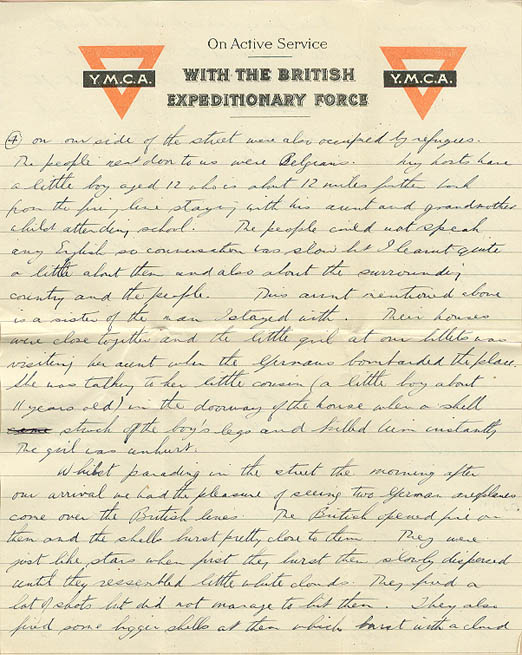 On Active Service
Y.M.C.A. WITH THE BRITISH Y.M.C.A.
EXPEDITIONARY FORCE
④ on our side of the street were also occupied by refugees.
The people next door to us were Belgians. My hosts have
a little boy aged 12 who is about 12 miles further back
from the firing line staying with his aunt and grandmother
whilst attending school. The people could not speak
any English so conversation was slow but I learnt quite
a little about them and also about the surrounding
country and the people. This aunt mentioned above
is a sister of the man I stayed with. Their houses
were close together and the little girl at our billets was
visiting her aunt when the Germans bombarded the place.
She was talking to her little cousin (a little boy about
11 years old) in the doorway of the house when a shell
struck off the boy's legs and killed him instantly
The girl was unhurt.
Whilst parading in the street the morning after
our arrival we had the pleasure of seeing two German aeroplanes
come over the British lines. The British opened fire on
them and the shells burst pretty close to them. They were
just like stars when first they burst then slowly dispersed
until they ressembled little white clouds. They fired a
lot of shots but did not manage to hit them. They also
fired some bigger shells at them which burst with a cloud